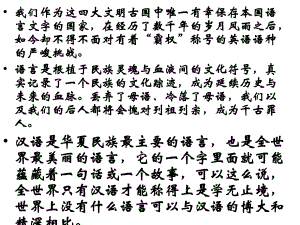 • 我们作为这四大文明古国中唯一有幸保存本国语
言文字的国家，在经历了数千年的岁月风雨之后，
如今却不得不面对有着“霸权”称号的英语语种
的严峻挑战。
• 语言是根植于民族灵魂与血液间的文化符号，真
实记录了一个民族的文化踪迹，成为延续历史与
未来的血脉。丢弃了母语、冷落了母语，我们以
及我们的后人都将会愧对列祖列宗，成为千古罪
人。
• 汉语是华夏民族最主要的语言，也是全世
界最美丽的语言，它的一个字里面就可能
蕴藏着一句话或一个故事，可以这么说，
全世界只有汉语才能称得上是学无止境，
世界上没有什么语言可以与汉语的博大和
精深相比。